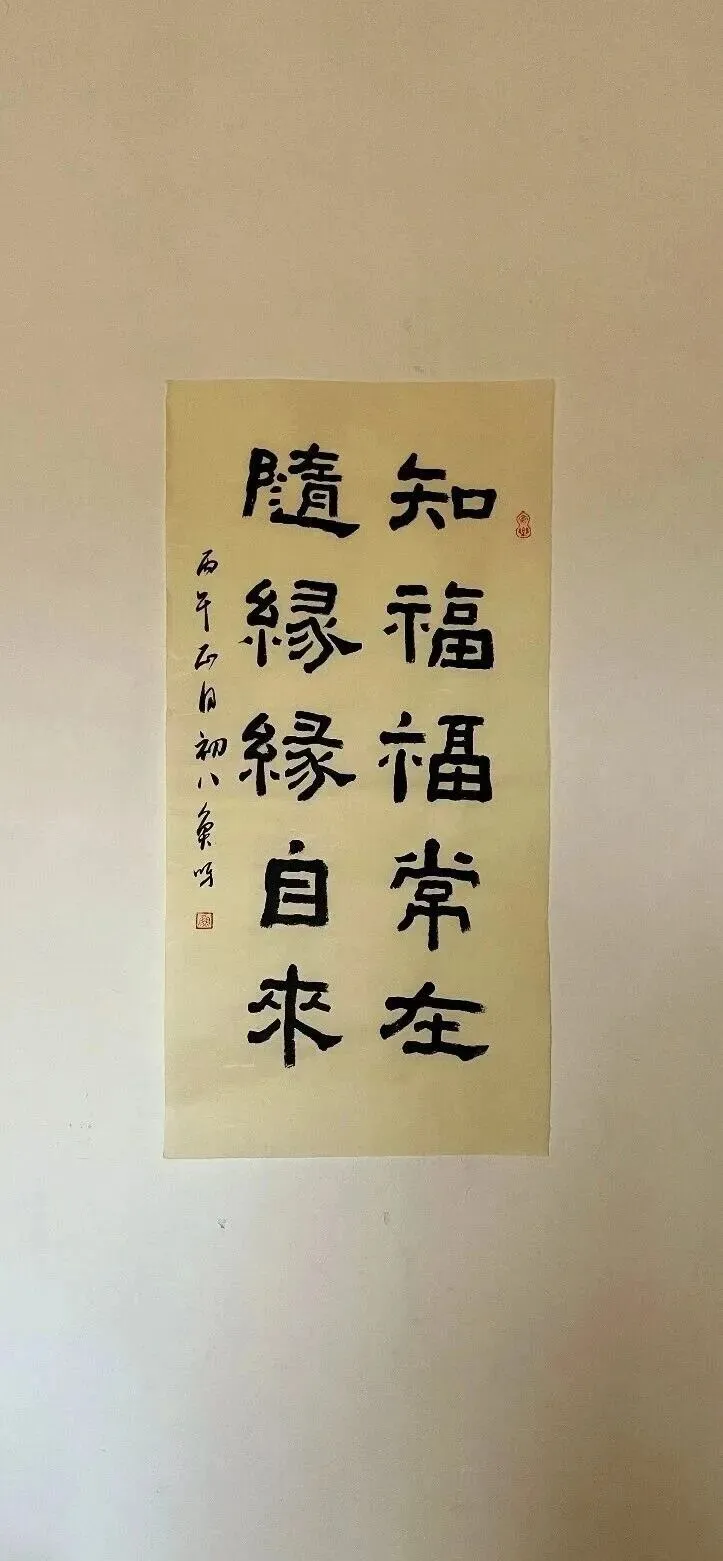 知福福常在
隨緣緣自來
丙午正月初八